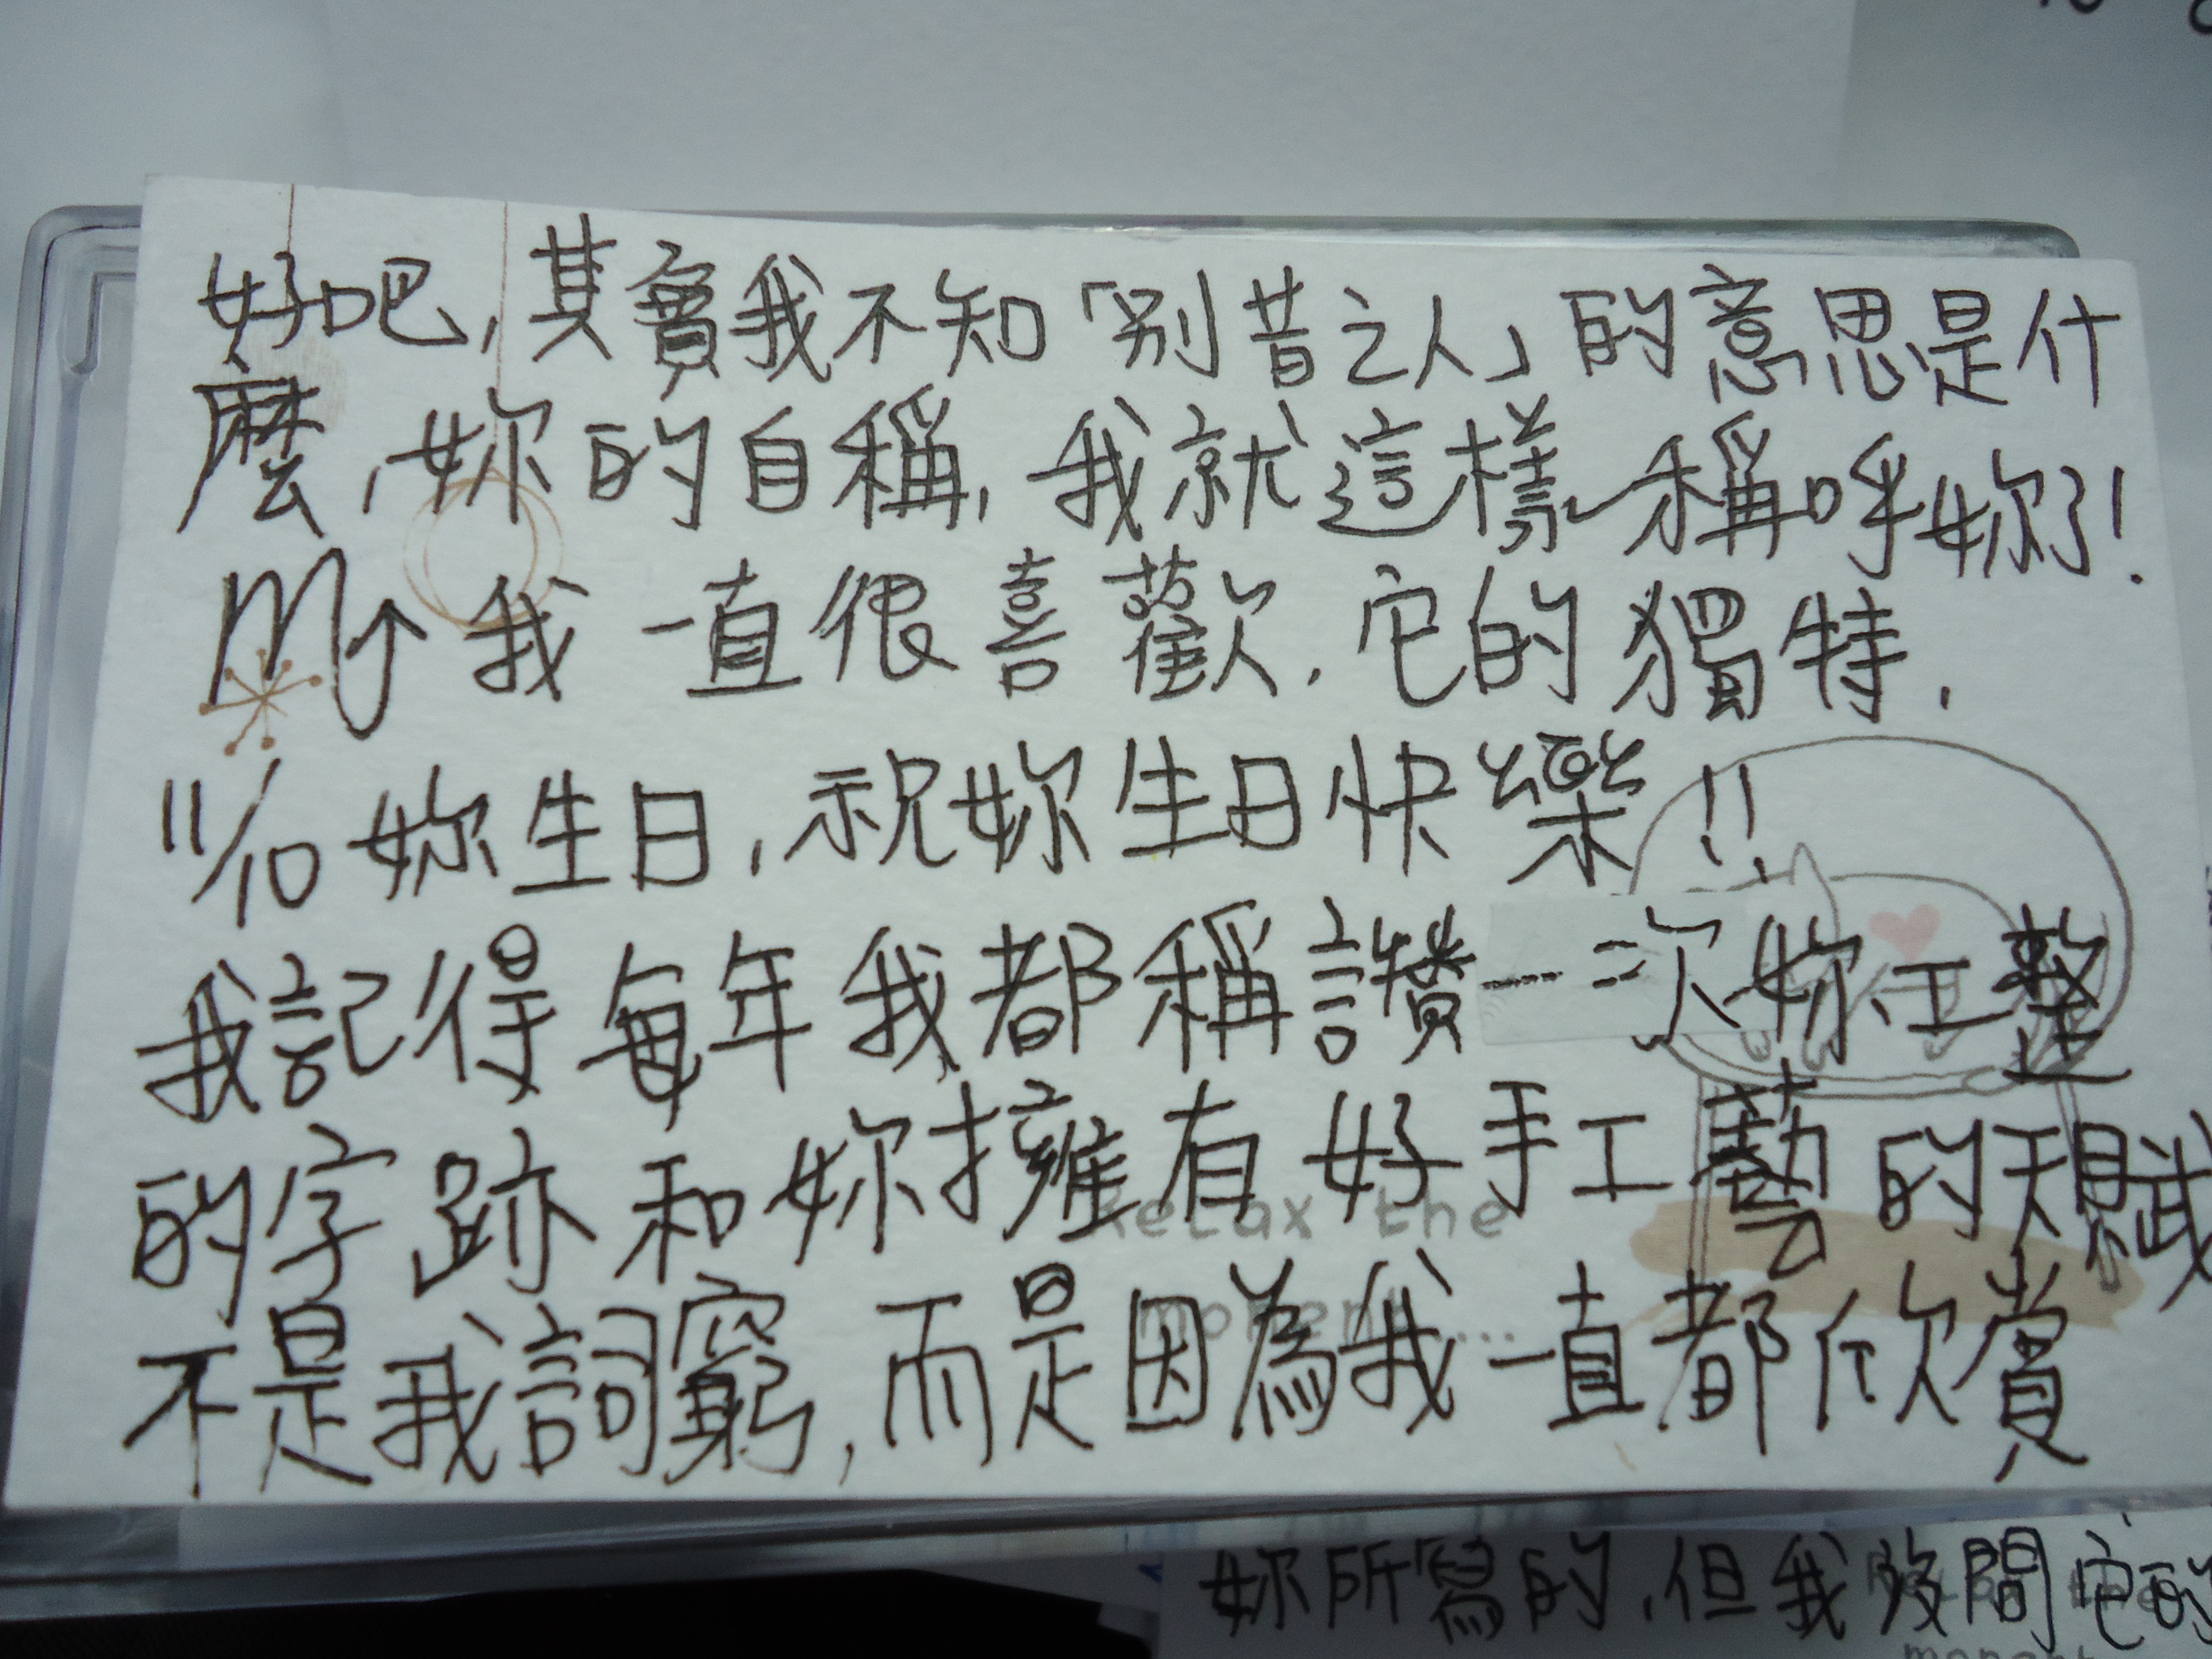 好吧，其實我不知「別昔之人」的意思是什
麼，妳的自稱，我就這樣稱呼妳了！
我一直很喜歡，它的獨特，
11/10 妳生日，祝妳生日快樂!!
我記得每年我都稱讚一次妳工整
的字跡和妳擁有好手工藝的天賦
Relax the
不是我詞窮，而是因為我一直都欣賞
moment...
妳所寫的，但我沒問它的
moment